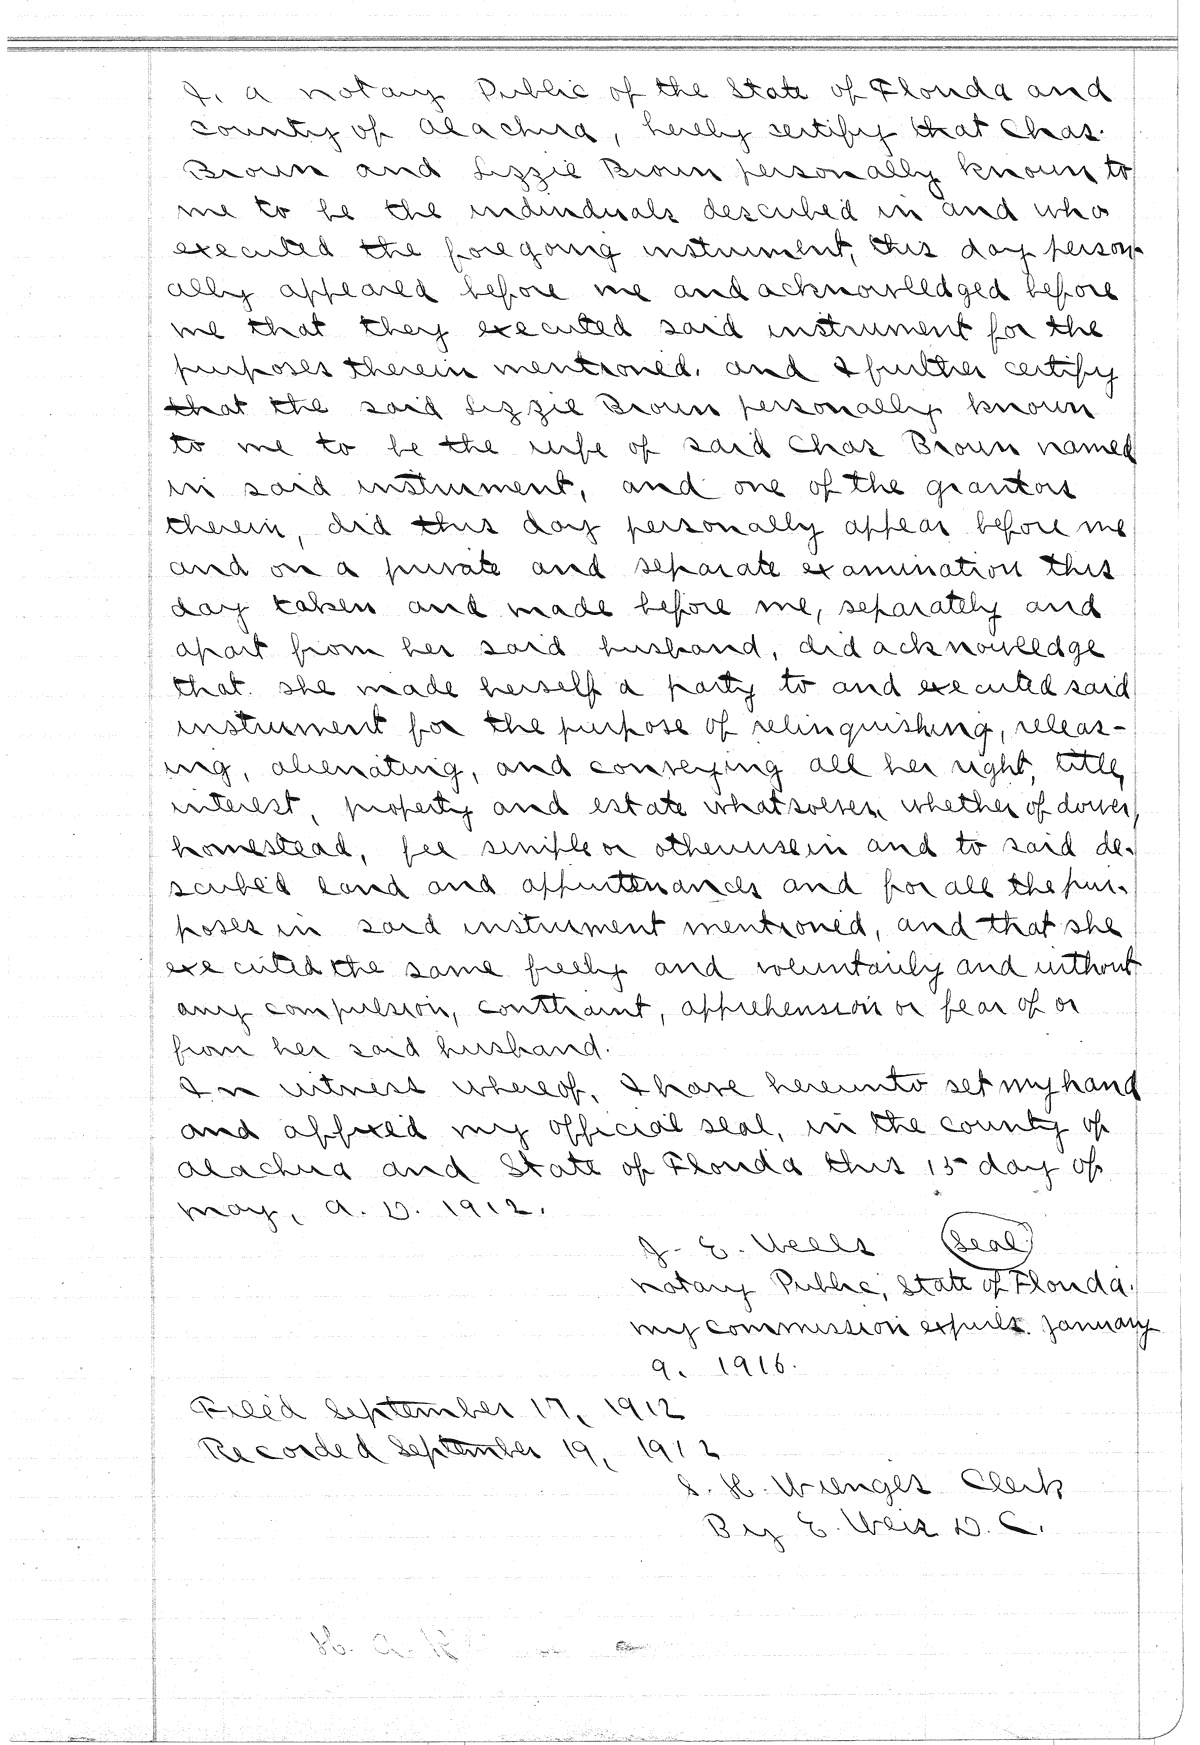 I, a notary Public of the State of Florida and
county of Alachua, hereby certify that Chas.
Brown and Lizzie Brown personally known to
me to be the individuals described in and who
executed the foregoing instrument, this day person-
ally appeared before me and acknowledged before
me that they executed said instrument for the
purposes therein mentioned. and I further certify
that the said Lizzie Brown personally known
to me to be the wife of said Chas Brown named
in said instrument, and one of the grantors
therein, did this day personally appear before me
and on a private and separate examination this
day taken and made before me, separately and
apart from her said husband, did acknowledge
that she made herself a party to and executed said
instrument for the purpose of relinquishing, releas-
ing, alienating, and conveying all her right, title,
interest, property and estate whatsoever, whether of dower,
homestead, fee simple or otherwise in and to said de-
scribed land and appurtenances and for all the pur-
poses in said instrument mentioned, and that she
executed the same freely and voluntarily and without
any compulsion, constraint, apprehension or fear of or
from her said husband.
In witness whereof, I have hereunto set my hand
and affixed my official seal, in the county of
Alachua and State of Florida this 15 day of
May, A. D. 1912.
J. E. Wells Seal
Notary Public, State of Florida.
my commission expires January
9, 1916.
Filed September 17, 1912
Recorded September 19, 1912
S. H. Wienges Clerk
By E. Weir D. C.